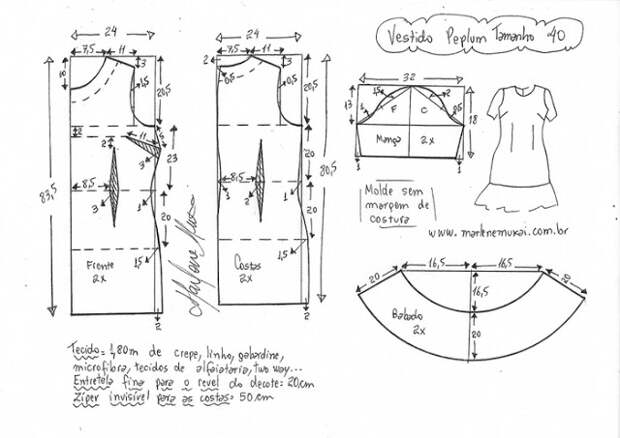 Vestido Peplum Tamanho 40
24
7,5 11
3
10
1,5
20,5
2
11
2
3
23
8,5
3
1
83,5
20
1,5
Frente
2x
2
24
2
7,5 11
3
0,5
0,5
20,5
20
8,5
3
1
80,5
20
1,5
Costas
2x
2
Marlene Mukai
32
1,5
2
13
1
F C
0,5
18
Manga 2x
1 1
Molde sem
margem de
costura
www.marlenemukai.com.br
16,5 16,5
20 20
16,5
Babado
2x
20
Tecido = 1,80m de crepe, linho, gabardine,
microfibra, tecidos de alfaiataria, two way...
Entretela fina para o revel do decote = 20cm
Zíper invisível para as costas = 50cm